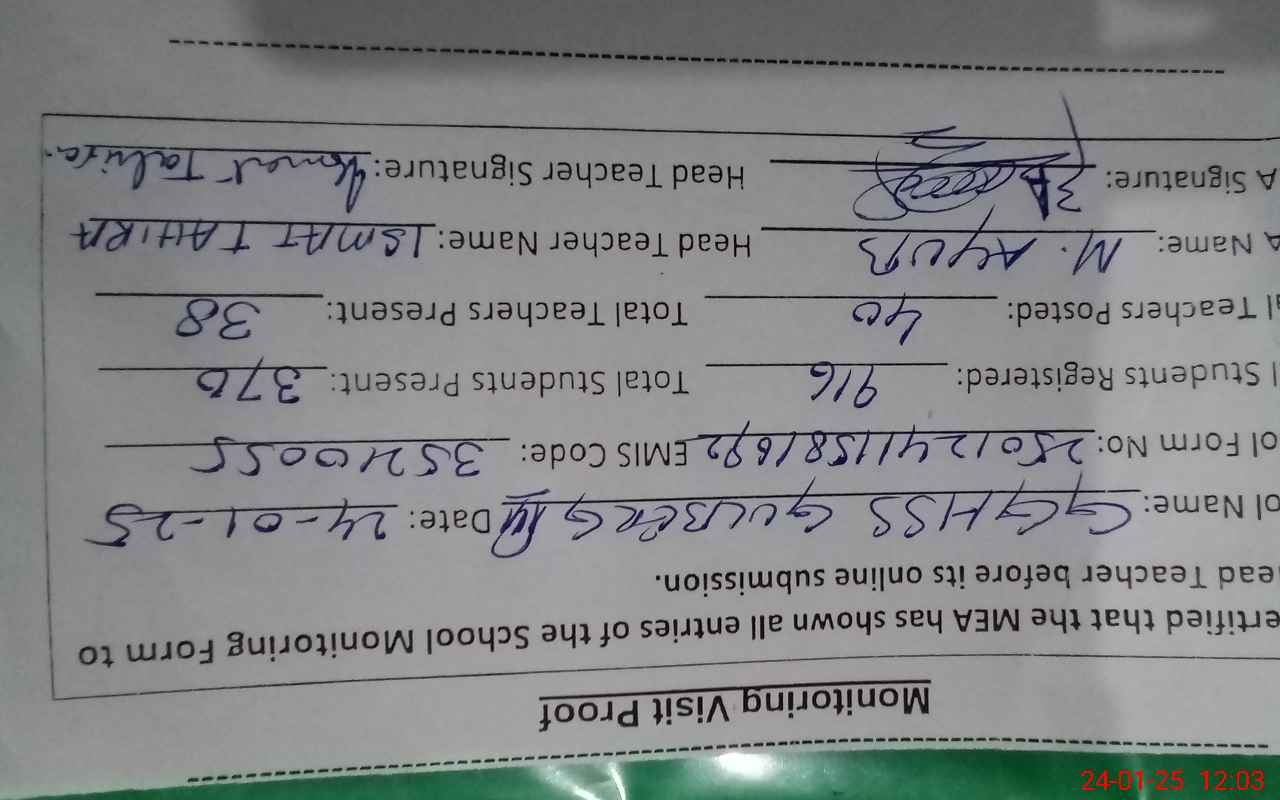 Monitoring Visit Proof
ertified that the MEA has shown all entries of the School Monitoring Form to
ead Teacher before its online submission.
ol Name: GGHSS GULBERG Date: 24-01-25
ol Form No: EMIS Code: 35210055
l Students Registered: 916 Total Students Present: 370
l Teachers Posted: 40 Total Teachers Present: 38
A Name: M. AYUB Head Teacher Name: ISMAT TAHIRA
A Signature: Head Teacher Signature: Ismat Tahira.
24-01-25 12:03